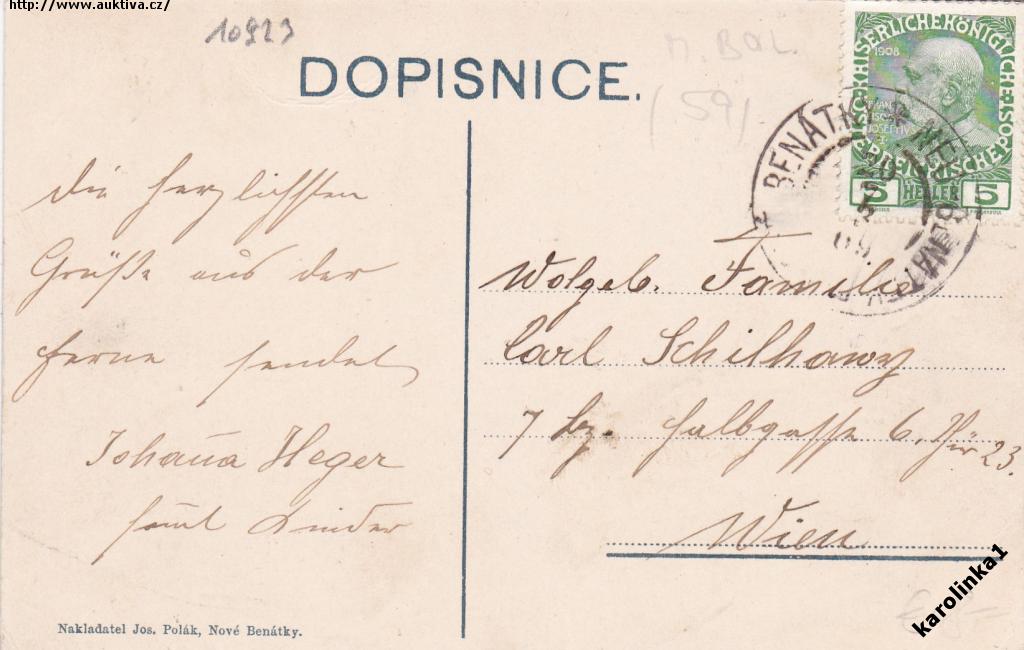 http://www.auktiva.cz/
10923
M. BOL.
(59)
DOPISNICE.
KAISERLICHE KÖNIGLICHE
1908
HELLER
5 5
BENÁTKY
Die herzlichsten
Grüße aus der
Ferne sendet
Johana Heger
samt Kinder
Wolgeb. Familie
Carl Schilhawy
7 bz. Halbgasse 6. Thür 23.
Wien
Nakladatel Jos. Polák, Nové Benátky.
karolinka1